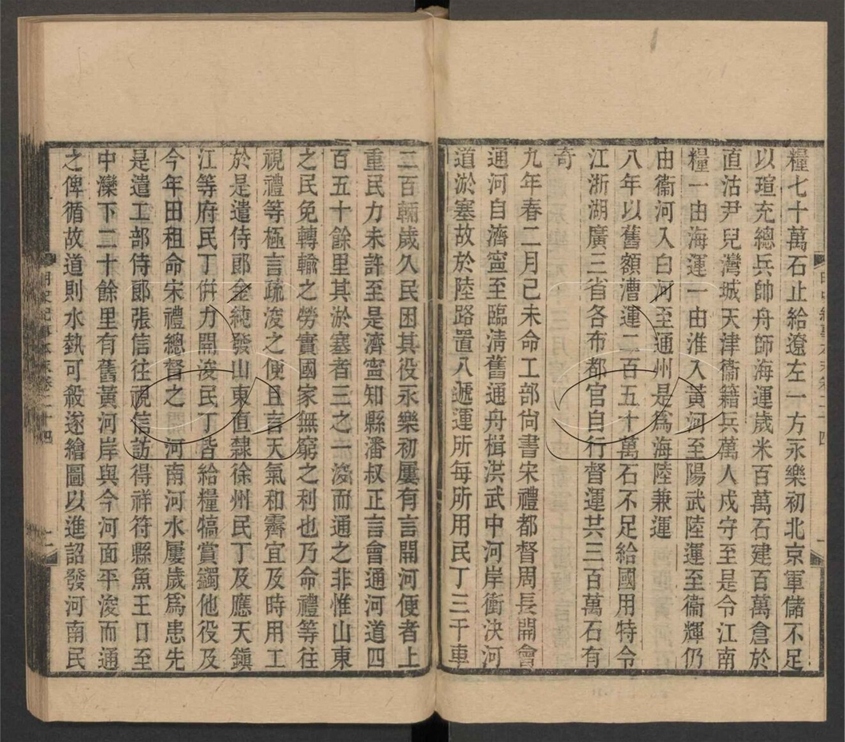 糧七十萬石止給遼左一方永樂初北京軍儲不足
以瑄充總兵帥舟師海運歲米百萬石建百萬倉於
直沽尹兒灣城天津衞籍兵萬人戍守至是令江南
糧一由海運一由淮入黃河至陽武陸運至衞輝仍
由衞河入白河至通州是爲海陸兼運
八年以舊額漕運二百五十萬石不足給國用特令
江浙湖廣三省各布都官自行督運共三百萬石有
奇
九年春二月己未命工部尙書宋禮都督周長開會
通河自濟寧至臨淸舊通舟楫洪武中河岸衝決河
道淤塞故於陸路置八遞運所每所用民丁三千車
二百輛歲久民困其役永樂初屢有言開河便者上
重民力未許至是濟寧知縣潘叔正言會通河道四
百五十餘里其淤塞者三之一浚而通之非惟山東
之民免轉輸之勞實國家無窮之利也乃命禮等往
視禮等極言疏浚之便且言天氣和霽宜及時用工
於是遣侍郞金純發山東直隸徐州民丁及應天鎭
江等府民丁倂力開浚民丁皆給糧犒賞蠲他役及
今年田租命宋禮總督之 河南河水屢歲爲患先
是遣工部侍郞張信往視信訪得祥符縣魚王口至
中灤下二十餘里有舊黃河岸與今河面平浚而通
之俾循故道則水埶可殺遂繪圖以進詔發河南民
明史紀事本末卷二十四